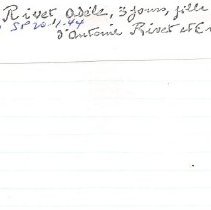 Rivet Adèle, 3 jours, fille
SP 20-1-44
d'Antoine Rivet et Er